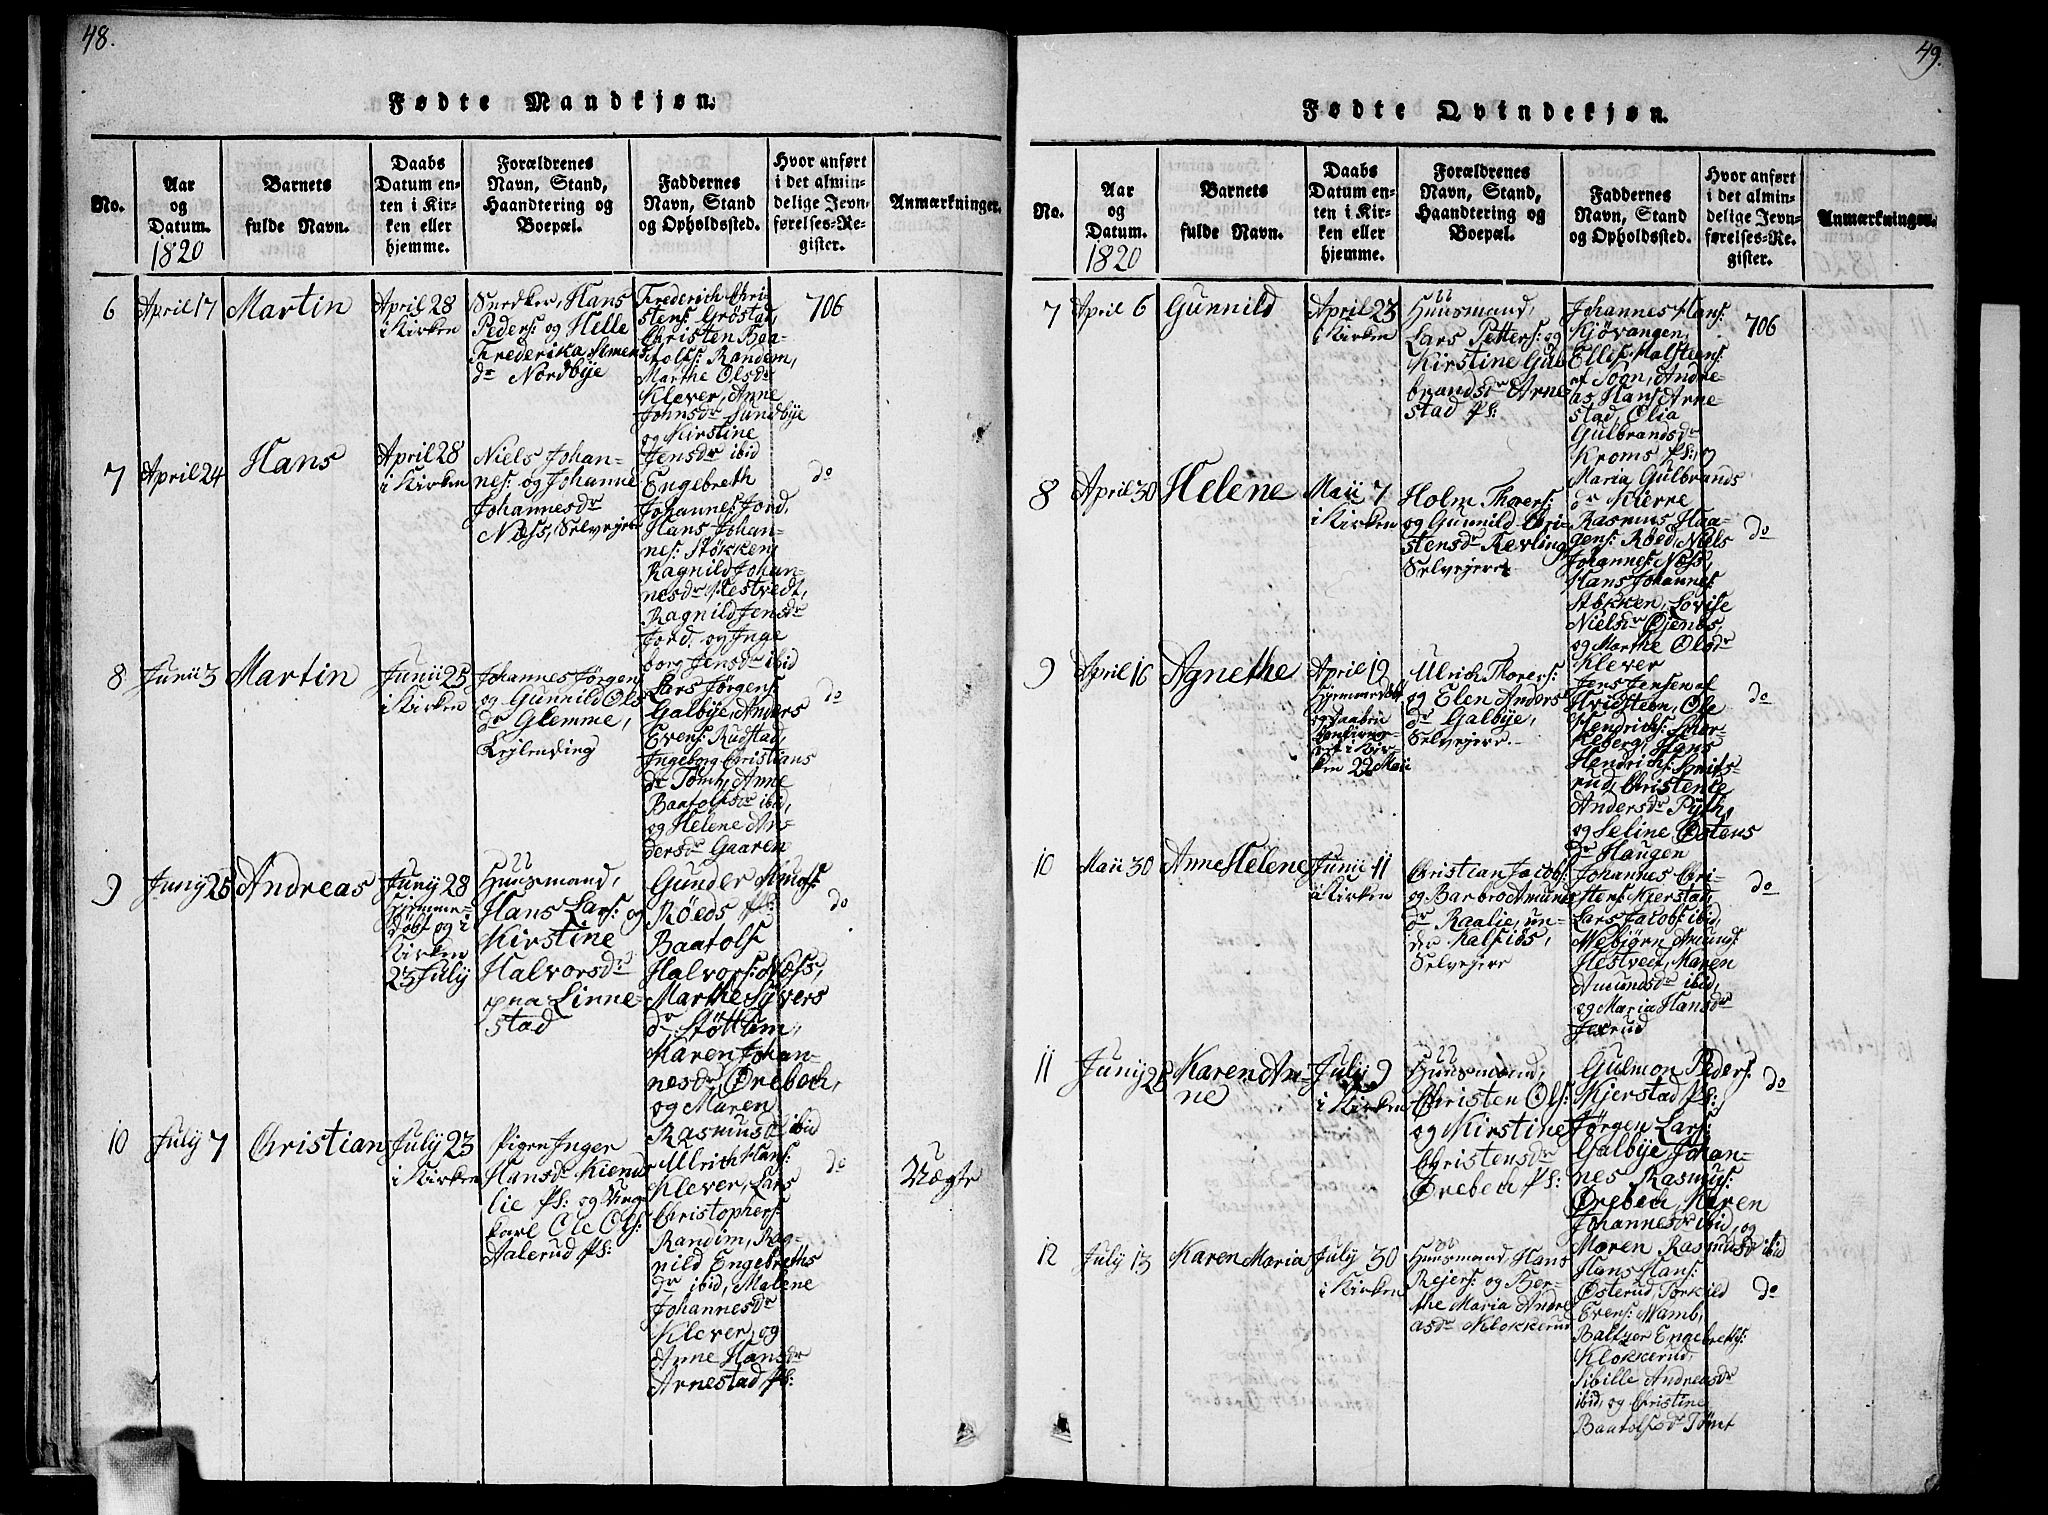 48.
Fødte Mandkjøn.
No.
Aar
og
Datum.
1820
Barnets
fulde Navn.
Daabs
Datum en-
ten i Kir-
ken eller
hjemme.
Forældrenes
Navn, Stand,
Haandtering og
Boepæl.
Faddernes
Navn, Stand
og Opholdssted.
Hvor anført
i det almin-
delige Jevn-
førelses-Re-
gister.
Anmærkninger.
6
April 17
Martin
April 28
i Kirken
Snedker, Hans
Peders: og Helle
Frederika Simens
dr Nordbÿe
Frederich Chri-
stens: Grøstad,
Christen Baa-
tolfs: Randem,
Marthe Olsdr
Klever, Anne
Johnsdr Sundbÿe
og Kirstine
Jensdr ibid
706
7
April 24
Hans
April 28
i Kirken
Niels Johan-
nes: og Johanne
Johannesdr
Næss, Selvejere
Engebreth
Johannes: Jord,
Hans Johan-
nes: Støkken,
Ragnild Johan-
nesdr Hestvedt,
Ragnild Jensdr
Jord, og Inge
borg Jensdr ibid
do
8
Junii 3
Martin
Junii 25
i Kirken
Johannes Jørgens
og Gunnild Ols
dr Glemme,
Lejlending
Lars Jørgens:
Galbÿe, Anders
Evens: Rudstad,
Ingeborg Christians
dr Tomt, Anne
Baatolfsdr ibid,
og Helene An-
dersdr Gaaren
do
9
Juny 25
Andreas
Juny 28
hjemme-
døbt og i
Kirken
23 July
Huusmand,
Hans Lars: og
Kirstine
Halvorsdr
paa Linne-
stad
Gunder Knuds:
Røeds Ps:
Baatolf
Halvors: Næss,
Marthe Syvers
dr Støttem,
Maren Johan-
nesdr Ørebech,
og Maren
Rasmusd ibid
do
10
July 7
Christian
July 23
i Kirken
Pigen Inger
Hansdr Kiend
lie Ps: og Ung
karl Ole Ols:
Aalerud Ps:
Ulrich Hans:
Klever, Lars
Christophers:
Randim, Rag-
nild Engebreths
dr ibid, Malene
Johannesdr
Klever, og
Anne Hansdr
Arnestad, Ps:
do
Uægte
49.
Fødte Qvindekjøn.
No.
Aar
og
Datum.
1820
Barnets
fulde Navn.
Daabs
Datum en-
ten i Kir-
ken eller
hjemme.
Forældrenes
Navn, Stand,
Haandtering og
Boepæl.
Faddernes
Navn, Stand
og Opholdssted.
Hvor anført
i det almin-
delige Jevn-
førelses-Re-
gister.
Anmærkninger.
7
April 6
Gunnild
April 23
i Kirken
Huusmand,
Lars Petters: og
Kirstine Gul
brandsdr Arne
stad Ps:
Johannes Hans:
Kjøvangen,
Ellef Halsteens:
af Sogn, Andre-
as Hans: Arne-
stad, Olia
Gulbrandsdr
Kroms, Ps: og
Maria Gulbrands
dr Kierre
706
8
April 30
Helene
Maii 7
i Kirken
Holm Thorers:
og Gunnild Chri-
stensdr Revling
Selvejere
Rasmus Haa-
gens: Røed, Niels
Johannes: Næss,
Hans Johannes
Støkken, Lovise
Nielsdr Øjenæs,
og Marthe Olsdr
Klever
do
9
April 16
Agnethe
April 19
hjemmedøbt
og Daaben
confirme-
ret i Kir-
ken 22 Maii
Ulrich Thorers:
og Elen Anders
dr Galbÿe,
Selvejere.
Jens Jensen af
Hvidsteen, Ole
Hendrichs: Scher-
keberg, Hans
Hendrichs: Snits-
rud, Christence
Andersdr Pÿth,
og Seline Østens
dr Haugen
do
10
Maii 30
Anne Helene
Junii 11
i Kirken
Christian Jacobs:
og Barbro Amunds
dr Raalie, un-
der Kalsiøs,
Selvejere
Johannes Chri-
stens: Kjerstad,
Lars Jacobs: ibid,
Webjørn Amunds:
Hestvedt, Maren
Amundsdr ibid,
og Maria Hansdr
Jexrud
do
11
Juny 25
Karen An-
ne
July 9
i Kirken
Huusmand,
Christen Ols:
og Kirstine
Christensdr
Ørebech Ps:
Gulmon Peders:
Kjerstad Ps:
Jørgen Lars:
Galbÿe, Johan-
nes Rasmus:
Ørebech, Karen
Johannesdr ibid, og
Maren Rasmusdr ibid
do
12
July 13
Karen Maria
July 30
i Kirken
Huusmand, Hans
Rejers: og Ber-
the Maria Andre
asdr Klokkerud
Hans Hans:
Østerud, Torkild
Evens: Mamb,
Baltzer Engebreths:
Klokkerud,
Sibille Andreasdr
ibid, og Christine
Baatolfsdr Tomt
do